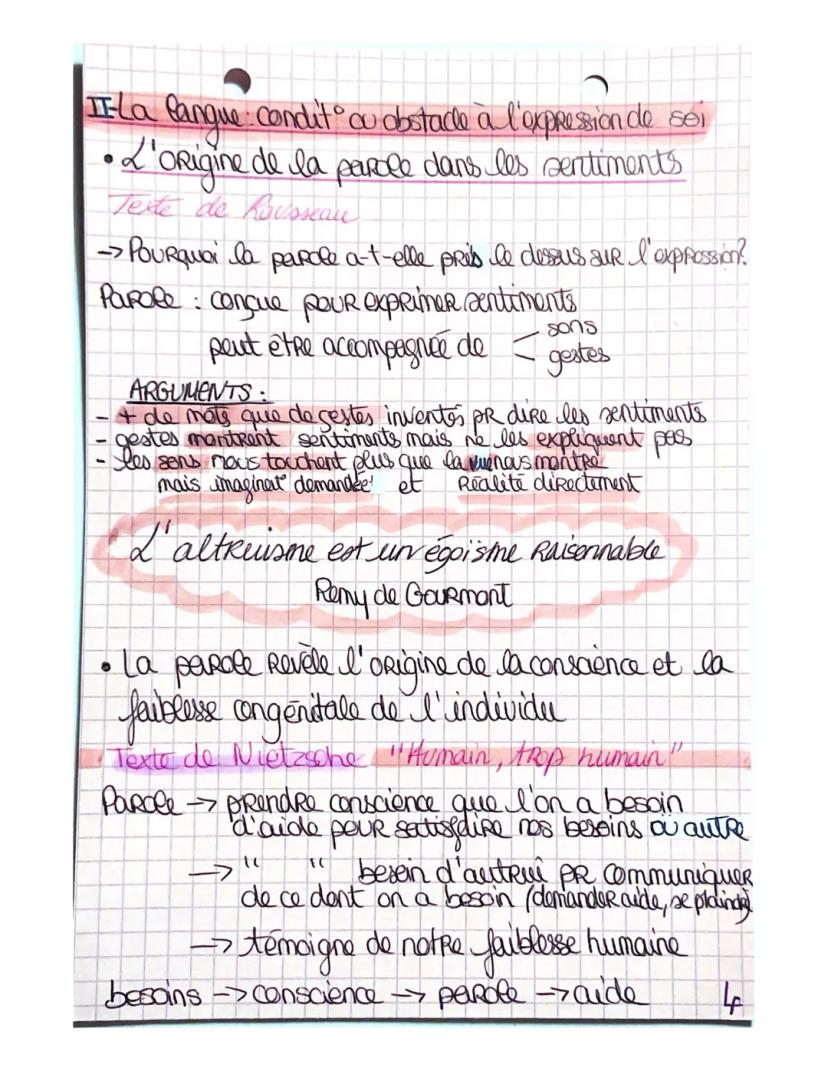 II-La langue : condit° ou obstacle à l'expression de soi
• L'origine de la parole dans les sentiments
Texte de Rousseau
-> Pourquoi la parole a-t-elle pris le dessus sur l'expression?
Parole : conçue pour exprimer sentiments
peut être accompagnée de < sons
gestes
ARGUMENTS :
- + de mots que de gestes inventés pr dire les sentiments
- gestes montrent sentiments mais ne les expliquent pas
- les sens nous touchent plus que la vue nous montre
mais imaginat° demandée! et Réalité directement
L'altruisme est un égoïsme raisonnable
Remy de Gourmont
• La parole révèle l'origine de la conscience et la
faiblesse congénitale de l'individu
Texte de Nietzsche "Humain, trop humain"
Parole -> prendre conscience que l'on a besoin
d'aide pour satisfaire nos besoins ou autre
-> " " besoin d'autrui pr communiquer
de ce dont on a besoin (demander aide, se plaindre)
-> témoigne de notre faiblesse humaine
besoins -> conscience -> parole -> aide 4